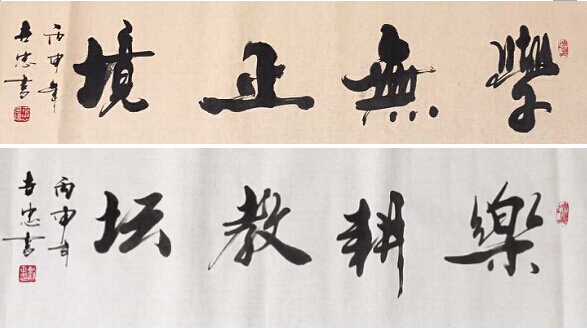 學無止境
丙申年
吉忠書
樂耕教坛
丙申
吉忠書